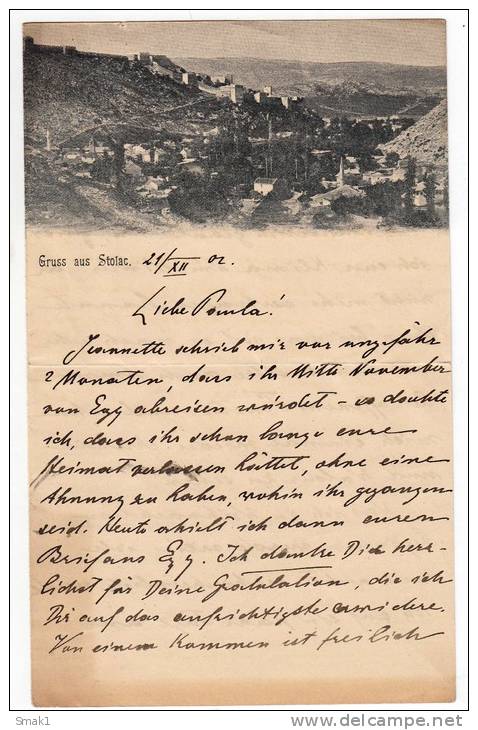 Gruss aus Stolac, 21/XII 02.
Liebe Paula!
Jeannette schrieb mir vor ungefähr
2 Monaten, dass ihr Mitte November
von Egg abreisen würdet – so dachte
ich, dass ihr schon lange eure
Heimat verlassen hättet, ohne eine
Ahnung zu haben, wohin ihr gegangen
seid. Heute erhielt ich dann euren
Brief aus Egg. Ich danke Dir herz-
lichst für Deine Gratulation, die ich
Dir auf das aufrichtigste erwidere.
Von einem Kommen ist freilich
Smak1
www.delcampe.net